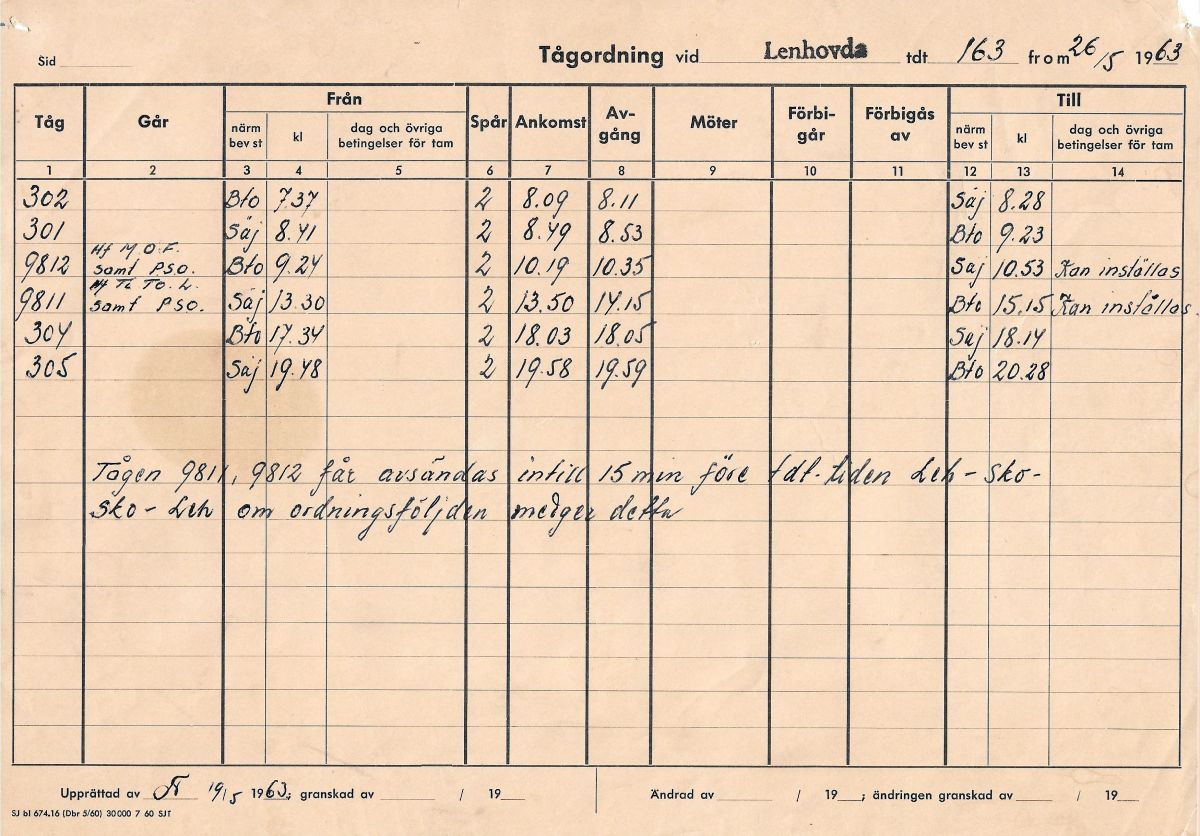 Sid Tågordning vid Lenhovda tdt 163 from 26/5 1963
Från Till
Tåg Går närm bev st kl dag och övriga betingelser för tam Spår Ankomst Av-gång Möter Förbi-går Förbigås av närm bev st kl dag och övriga betingelser för tam
1 2 3 4 5 6 7 8 9 10 11 12 13 14
302 Bto 7.37 2 8.09 8.11 Säj 8.28
301 Säj 8.41 2 8.49 8.53 Bto 9.23
Hf M.O.F.
9812 samt PSO. Bto 9.24 2 10.19 10.35 Säj 10.53 Kan inställas
Hf Ti TO. L.
9811 samt PSO. Säj 13.30 2 13.50 14.15 Bto 15.15 Kan inställas
304 Bto 17.34 2 18.03 18.05 Säj 18.14
305 Säj 19.48 2 19.58 19.59 Bto 20.28
Tågen 9811, 9812 får avsändas intill 15 min före tdt-tiden Leh - Sko -
Sko - Leh om ordningsföljden medger detta
Upprättad av 19/5 1963; granskad av / 19 Ändrad av / 19 ; ändringen granskad av / 19
SJ bl 674.16 (Dbr 5/60) 30000 7 60 SJT